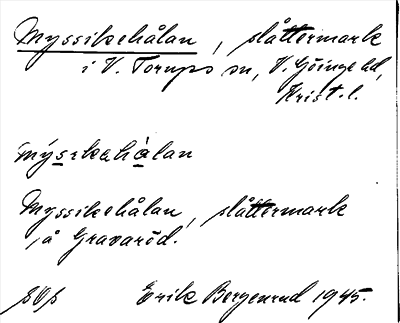 Myssikehålan, slåttermark
i V. Torups sn, V. Göinge hd,
Krist. l.
mýsikahàlan
Myssikehålan, slåttermark
på Gravaröd.
Erik Bergenrud 1945.